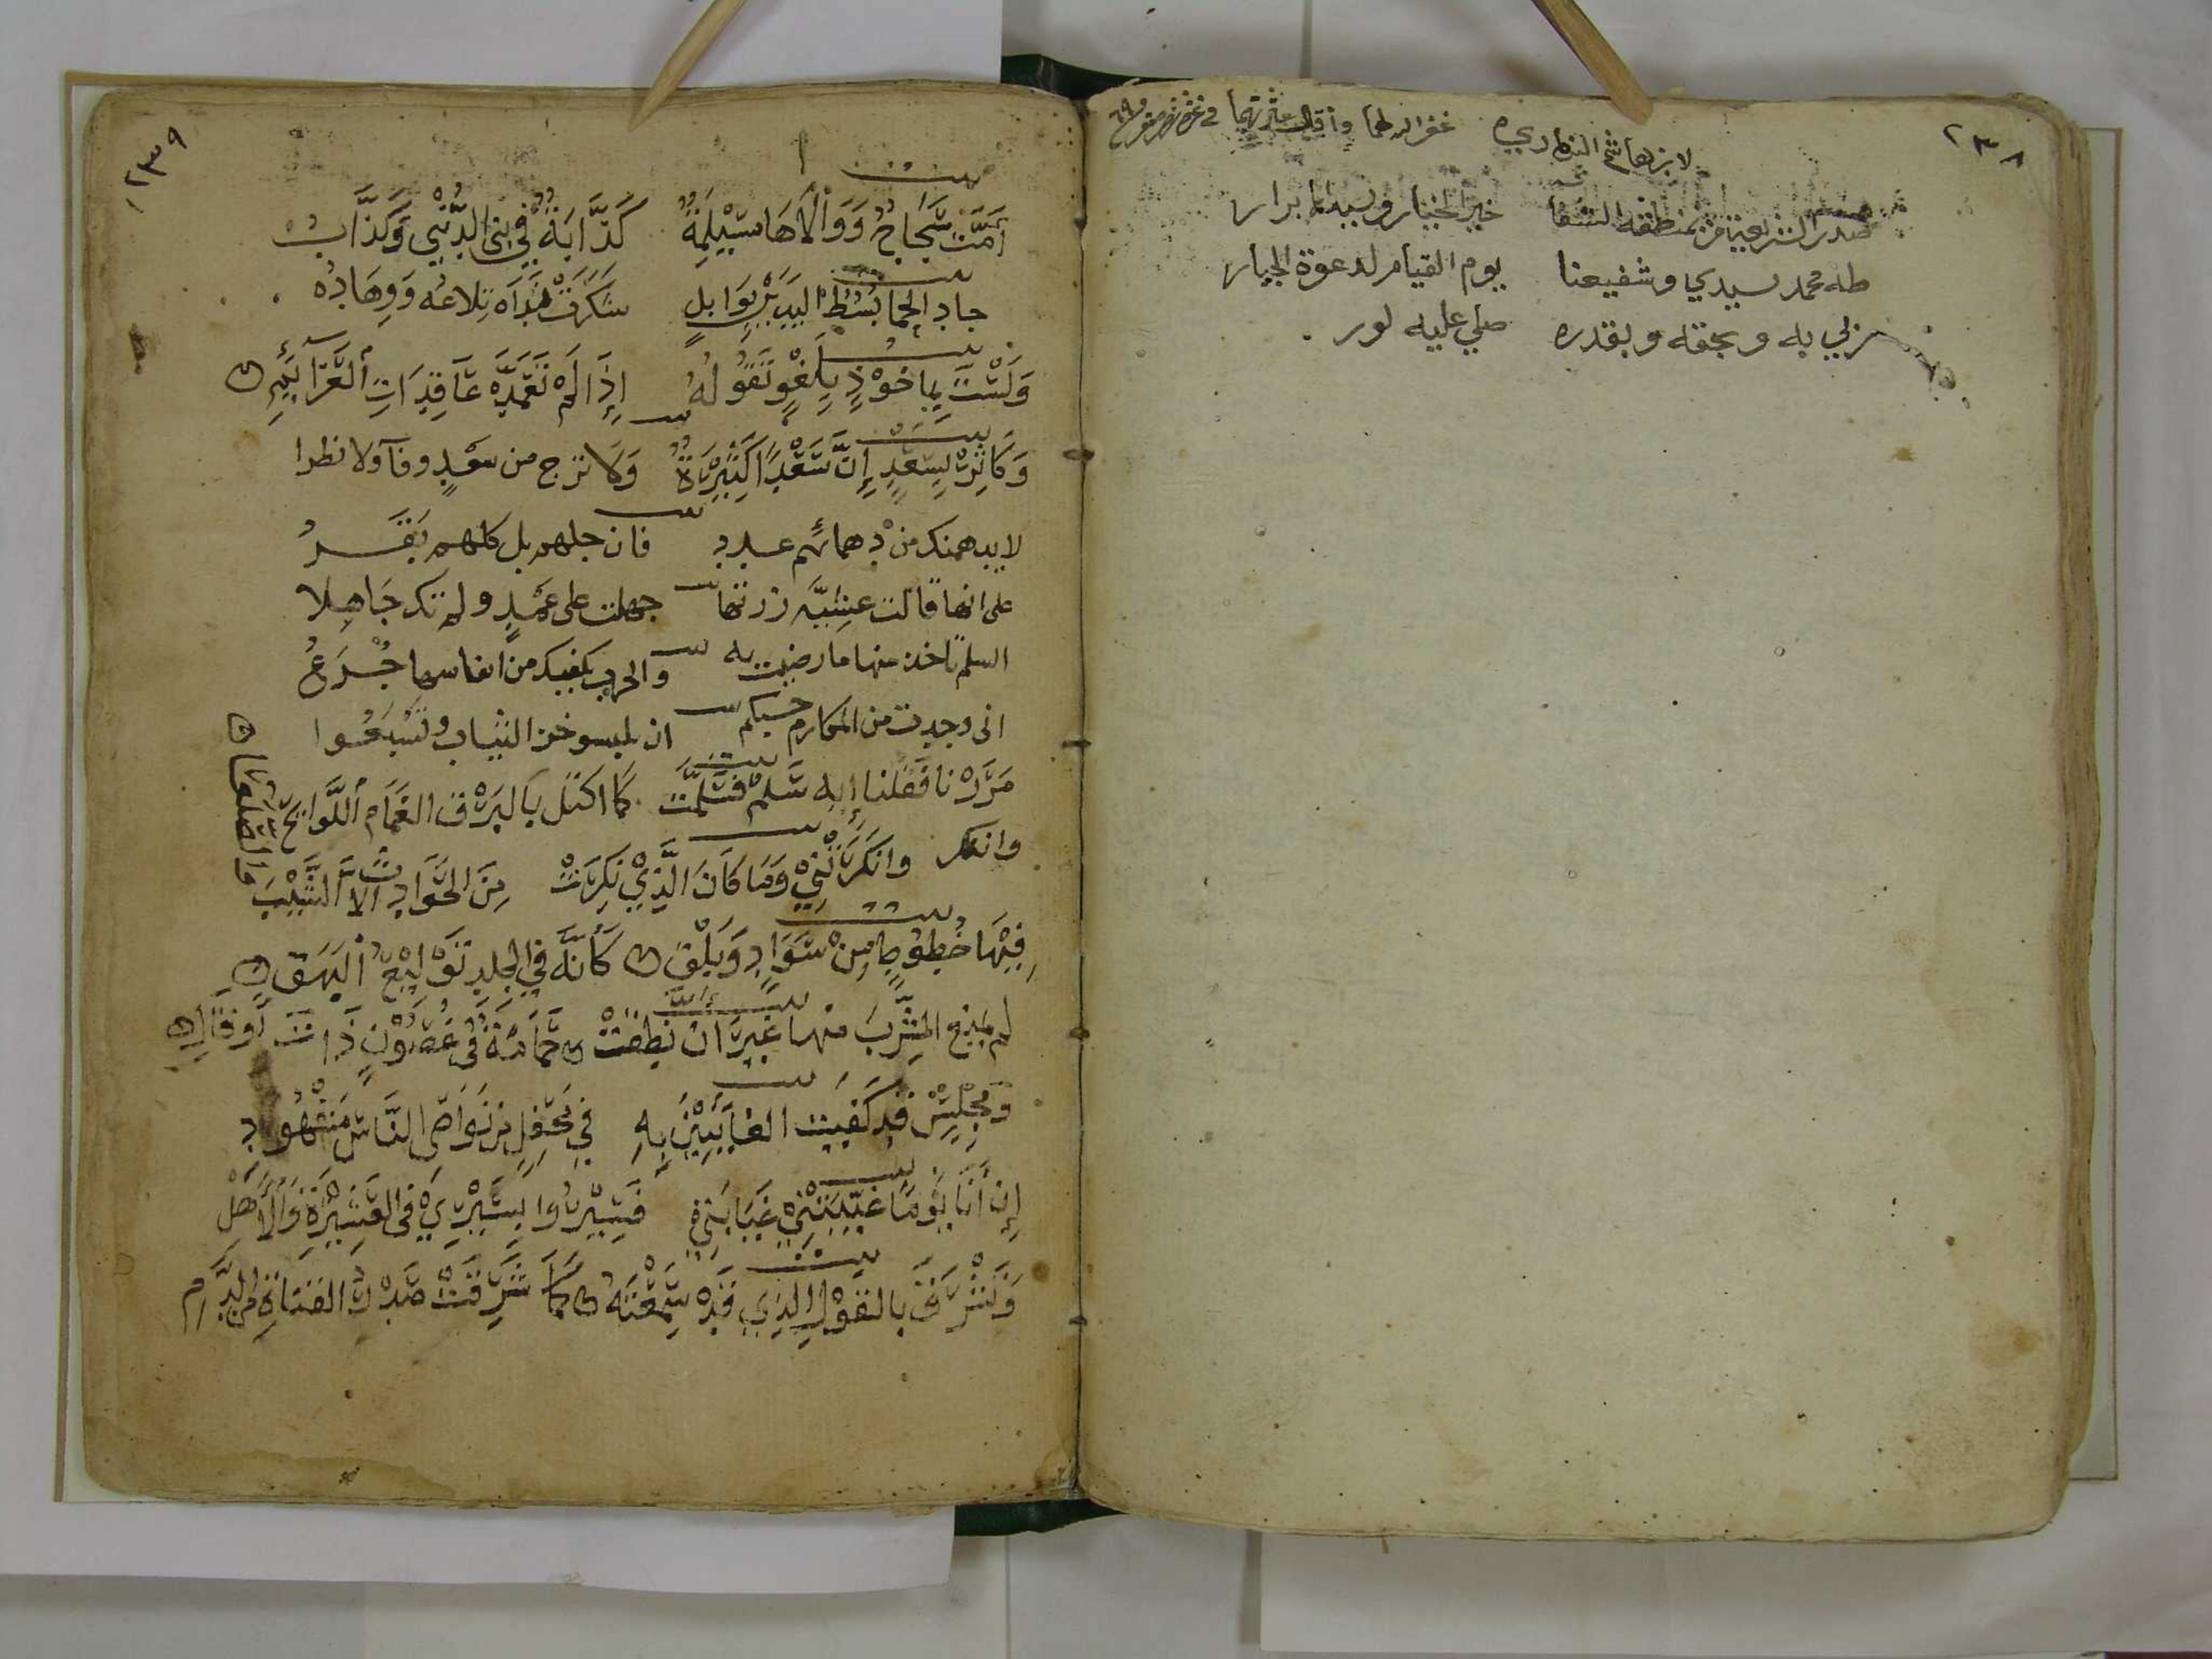 ٢٣٨
لابن هاشم الذماري غفر الله لهما وأقال عثرتهما في غرة شهر صفر
صدر الشريعة من بمنطقه الشفا خير الخيار وسيد الابرار
طه محمد سيدي وشفيعنا يوم القيام لدعوة الجبار
ربي به وبحقه وبقدره صلي عليه
٢٣٩
بيت
أَمَّتْ سَجَاحٌ وَوَالَاهَا مُسَيْلِمَةٌ كَذَّابَةٌ فِي بَنِي الدُّنْيَى وَكَذَّابُ
بيت
جاد الحما بُسُطُ اليدين بِوَابِلٍ شَكَرَتْ نَدَاه تِلاعُه وَوِهَادُه
وَلَسْتَ بِمَاخُوْذٍ بِلَغْوٍ تَقُولُهُ إِذَا لَمْ تَعَمَّدْ عَاقِدَاتِ الْعَزَآئِمِ
بيت
وَكَاثِرْ بِسَعْدٍ إِنَّ سَعْدًا كَثِيْرَةٌ وَلَا ترج من سَعْدٍ وفآ ولا نصرا
لا يدهمنك من دهمائهم عدد فان جلهم بل كلهم بَقَرُ
على انها قالت عشيّه زرتها جهلت على عَمْدٍ ولم تك جَاهِلا
السلم تاخذ منها ما رضيت به والحرب يكفيك من انفاسها جُرَعُ
انى وجدت من المكارم حسبكم ان تلبسو خز الثياب وتَشْبَعُوا
بيت
مَرَرْنا فَقُلنا إِيهِ سَلْمٌ فَسَلَّمَتْ كَمَا اكتَل بالبَرْق الغَمَامُ اللَّوَايِحُ
وانكر وانكَرَتْنِيْ وَمَا كَانَ الَّذِيْ نَكِرَتْ مِنَ الحَوَادِثِ الَّا الشَّيْبَ
والصلعا
بيت
فِيْهَا خُطُوطٍ مِنْ سَوَادٍ وَبَلَقْ كَأَنَّهُ فِي الجلدِ تَوْلِيْعُ الْبَهَقْ
بيت
لم يمنع الشِّرْبَ منها غَيْرَ ان نَطَقَتْ حَمَامَةٌ فِي غُصُوْنٍ ذَات أَوْقَالِ
بيت
وَمَجْلِسٍ قد كَفَيْت الغايبين بِهِ فِي مَحْفِلٍ من نَوَاصِي النَّاسِ مَشْهُوْدِ
بيت
إِن أَنَا يَومًا غَيَّبَتْنِيْ غَيَابَتِيْ فَسِيْرُوا بِسَيْرِيْ فِي العَشِيْرَةِ وَالْأَهْلِ
بيت
وَتَشْرَقُ بالقَوْلِ الذِي قَدْ سَمِعْتَهُ كَمَا شَرِقَتْ صَدْرُ القناةِ من الدَّمِ